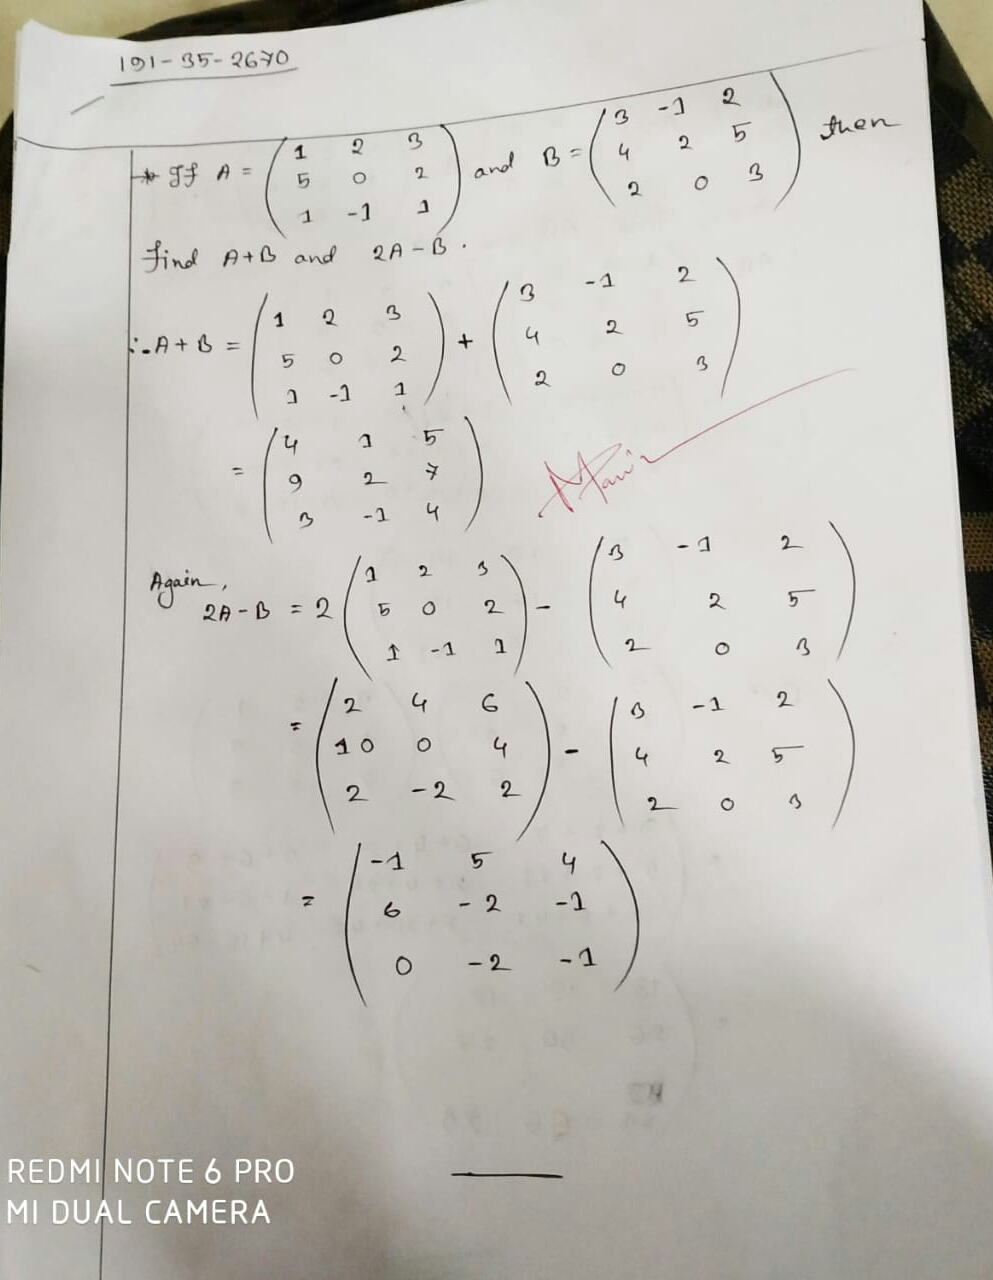 191-35-2670
* If A = (1 2 3
5 0 2
1 -1 1) and B = (3 -1 2
4 2 5
2 0 3) then
find A+B and 2A-B.
∴ A+B = (1 2 3
5 0 2
1 -1 1) + (3 -1 2
4 2 5
2 0 3)
= (4 1 5
9 2 7
3 -1 4)
Again,
2A-B = 2 (1 2 3
5 0 2
1 -1 1) - (3 -1 2
4 2 5
2 0 3)
= (2 4 6
10 0 4
2 -2 2) - (3 -1 2
4 2 5
2 0 3)
= (-1 5 4
6 -2 -1
0 -2 -1)
REDMI NOTE 6 PRO
MI DUAL CAMERA